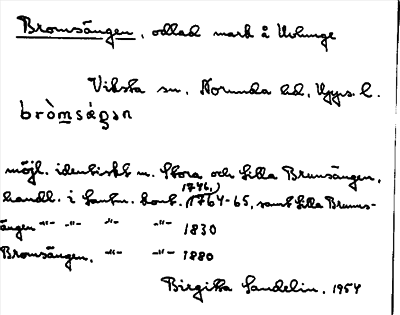 Bromsängen, odlad mark å Ulunge
Viksta sn, Norunda hd, Upps. l.
bròmsáŋən
möjl. identiskt m. Stora och Lilla Brumsängen,
1746,
handl. i Lantm. kont. 1764-65, samt Lilla Brums-
ängen -"- -"- -"- -"- 1830
Bromsängen, -"- -"- 1880
Birgitta Sandelin. 1954